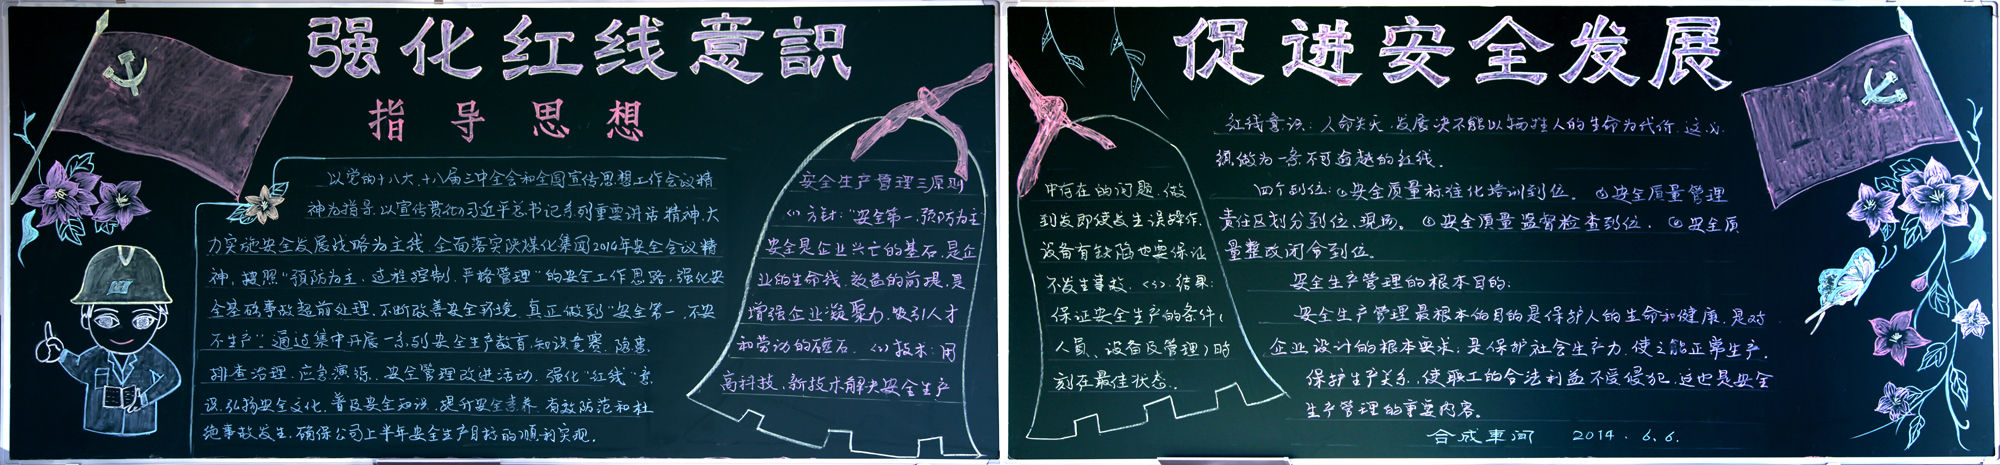 强化红线意识
指导思想
以党的十八大、十八届三中全会和全国宣传思想工作会议精
神为指导，以宣传贯彻习近平总书记系列重要讲话精神，大
力实施安全发展战略为主线，全面落实陕煤化集团2014年安全会议精
神，按照“预防为主、过程控制、严格管理”的安全工作思路，强化安
全基础事故超前处理，不断改善安全环境，真正做到“安全第一，不安
不生产”。通过集中开展一系列安全生产教育、知识竞赛、隐患
排查治理、应急演练、安全管理改进活动，强化“红线”意
识，弘扬安全文化，普及安全知识，提升安全素养，有效防范和杜
绝事故发生，确保公司上半年安全生产目标的顺利实现。
安全生产管理三原则
<1>方针：“安全第一，预防为主
安全是企业兴亡的基石，是企
业的生命线，效益的前提，是
增强企业凝聚力，吸引人才
和劳动的磁石。<2>技术：用
高科技、新技术解决安全生产
促进安全发展
中存在的问题，做
到发即使发生误操作，
设备有缺陷也要保证
不发生事故。<3>结果：
保证安全生产的条件（
人员、设备及管理）时
刻在最佳状态。
红线意识：人命关天，发展决不能以牺牲人的生命为代价，这必
须做为一条不可逾越的红线。
四个到位：①安全质量标准化培训到位。②安全质量管理
责任区划分到位、现场。③安全质量监督检查到位。④安全质
量整改闭合到位。
安全生产管理的根本目的：
安全生产管理最根本的目的是保护人的生命和健康，是对
企业设计的根本要求；是保护社会生产力，使之能正常生产，
保护生产关系，使职工的合法利益不受侵犯，这也是安全
生产管理的重要内容。
合成车间 2014.6.6.